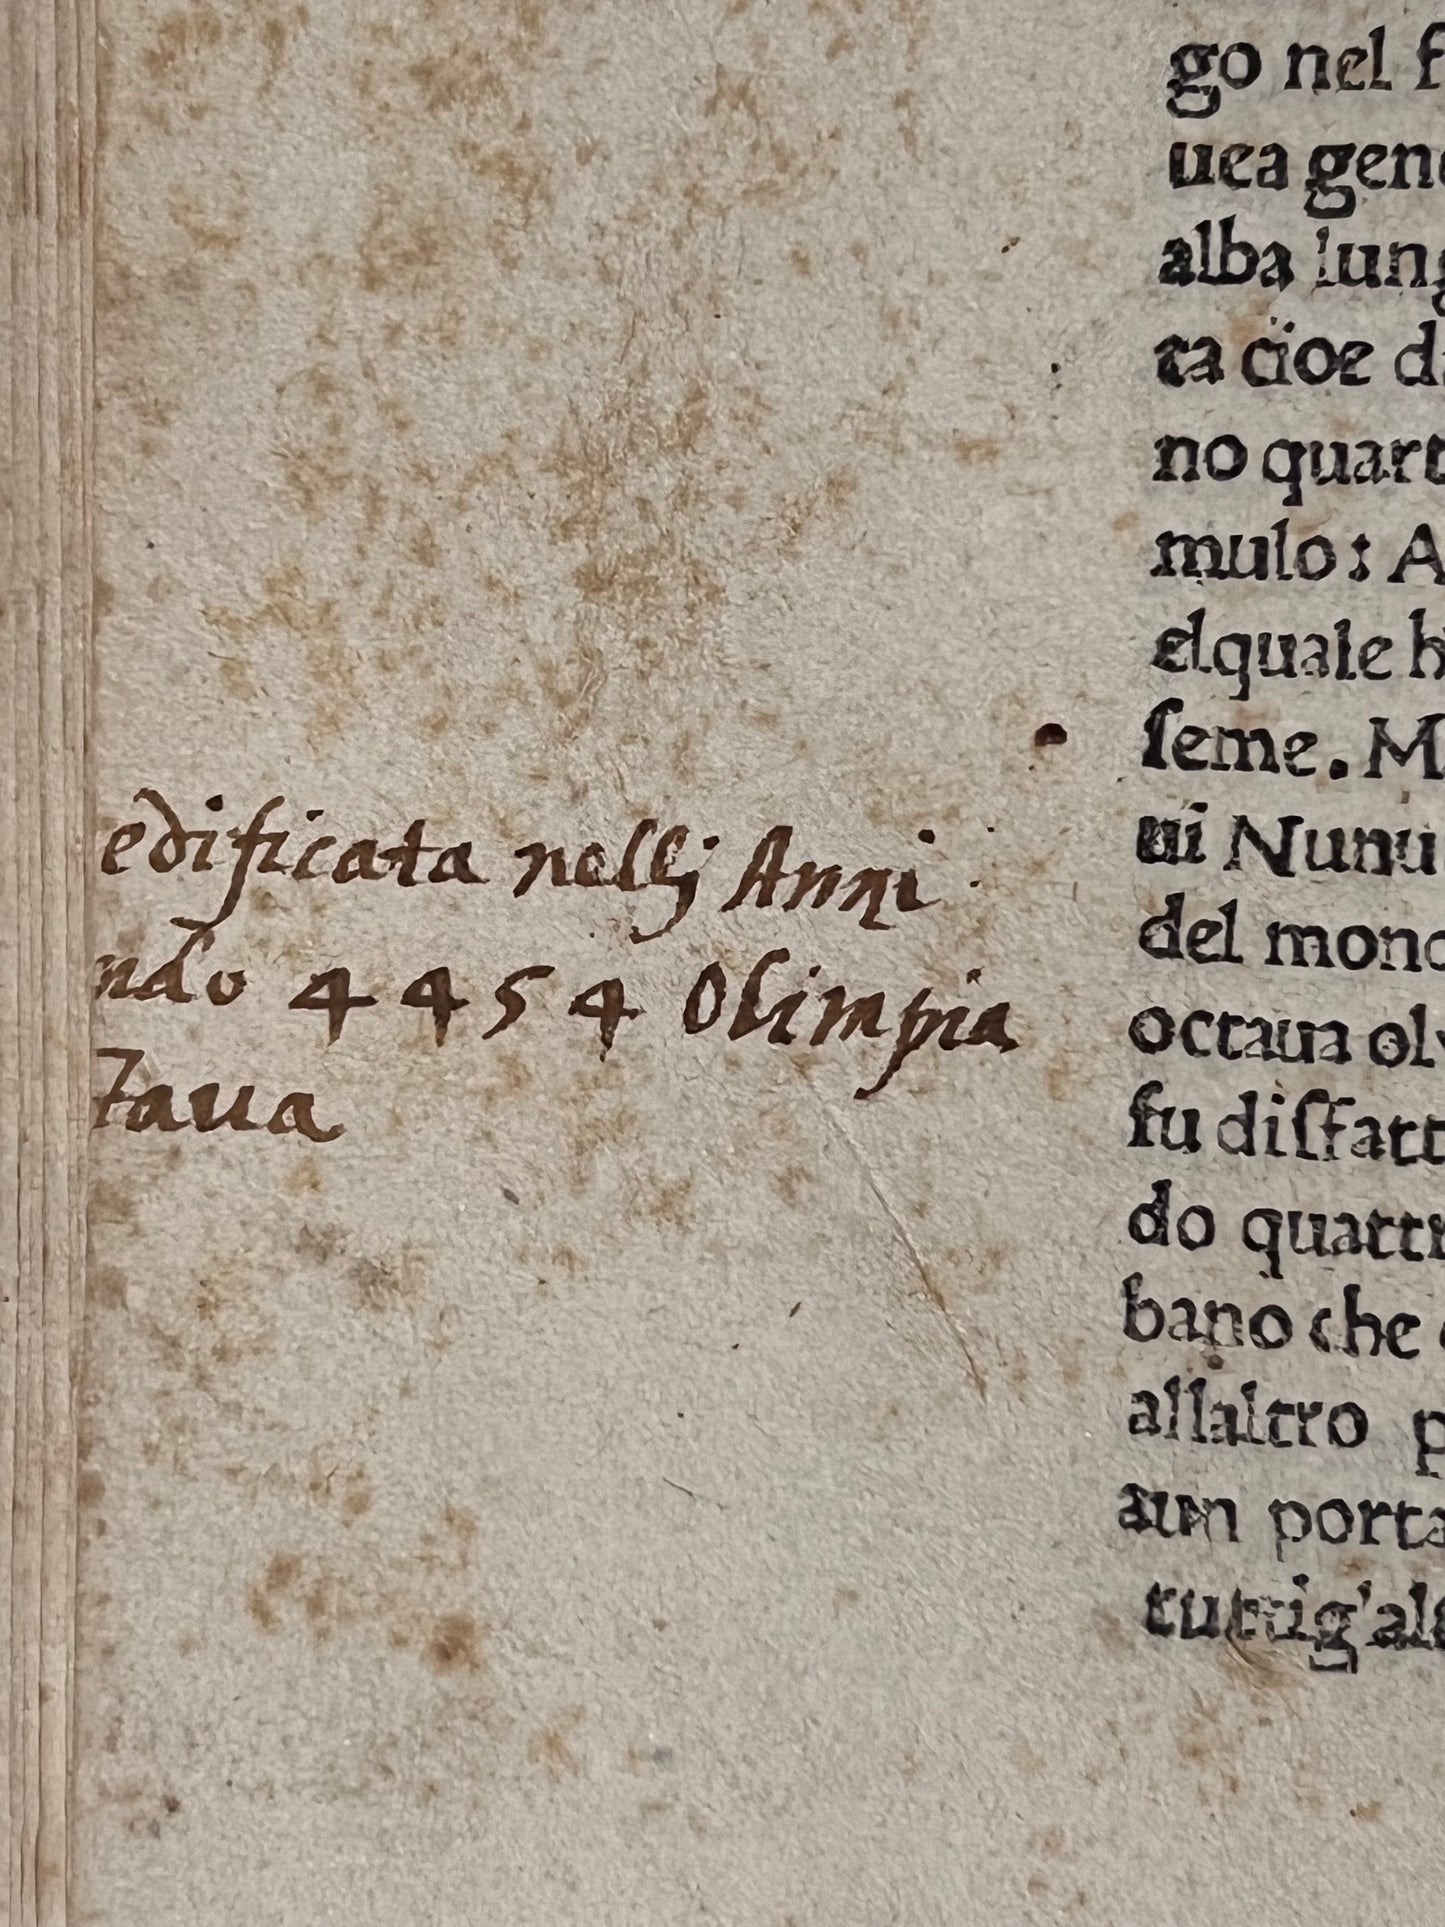 edificata nellj Anni
ndo 4454 Olimpia
taua
go nel f
uea gene
alba lung
ra cioe da
no quart
mulo: A
elquale h
ſeme. M
ui Numi
del mond
octaua oly
fu diſfatt
do quattr
bano che
allaltro p
aun porta
tuttig'alt